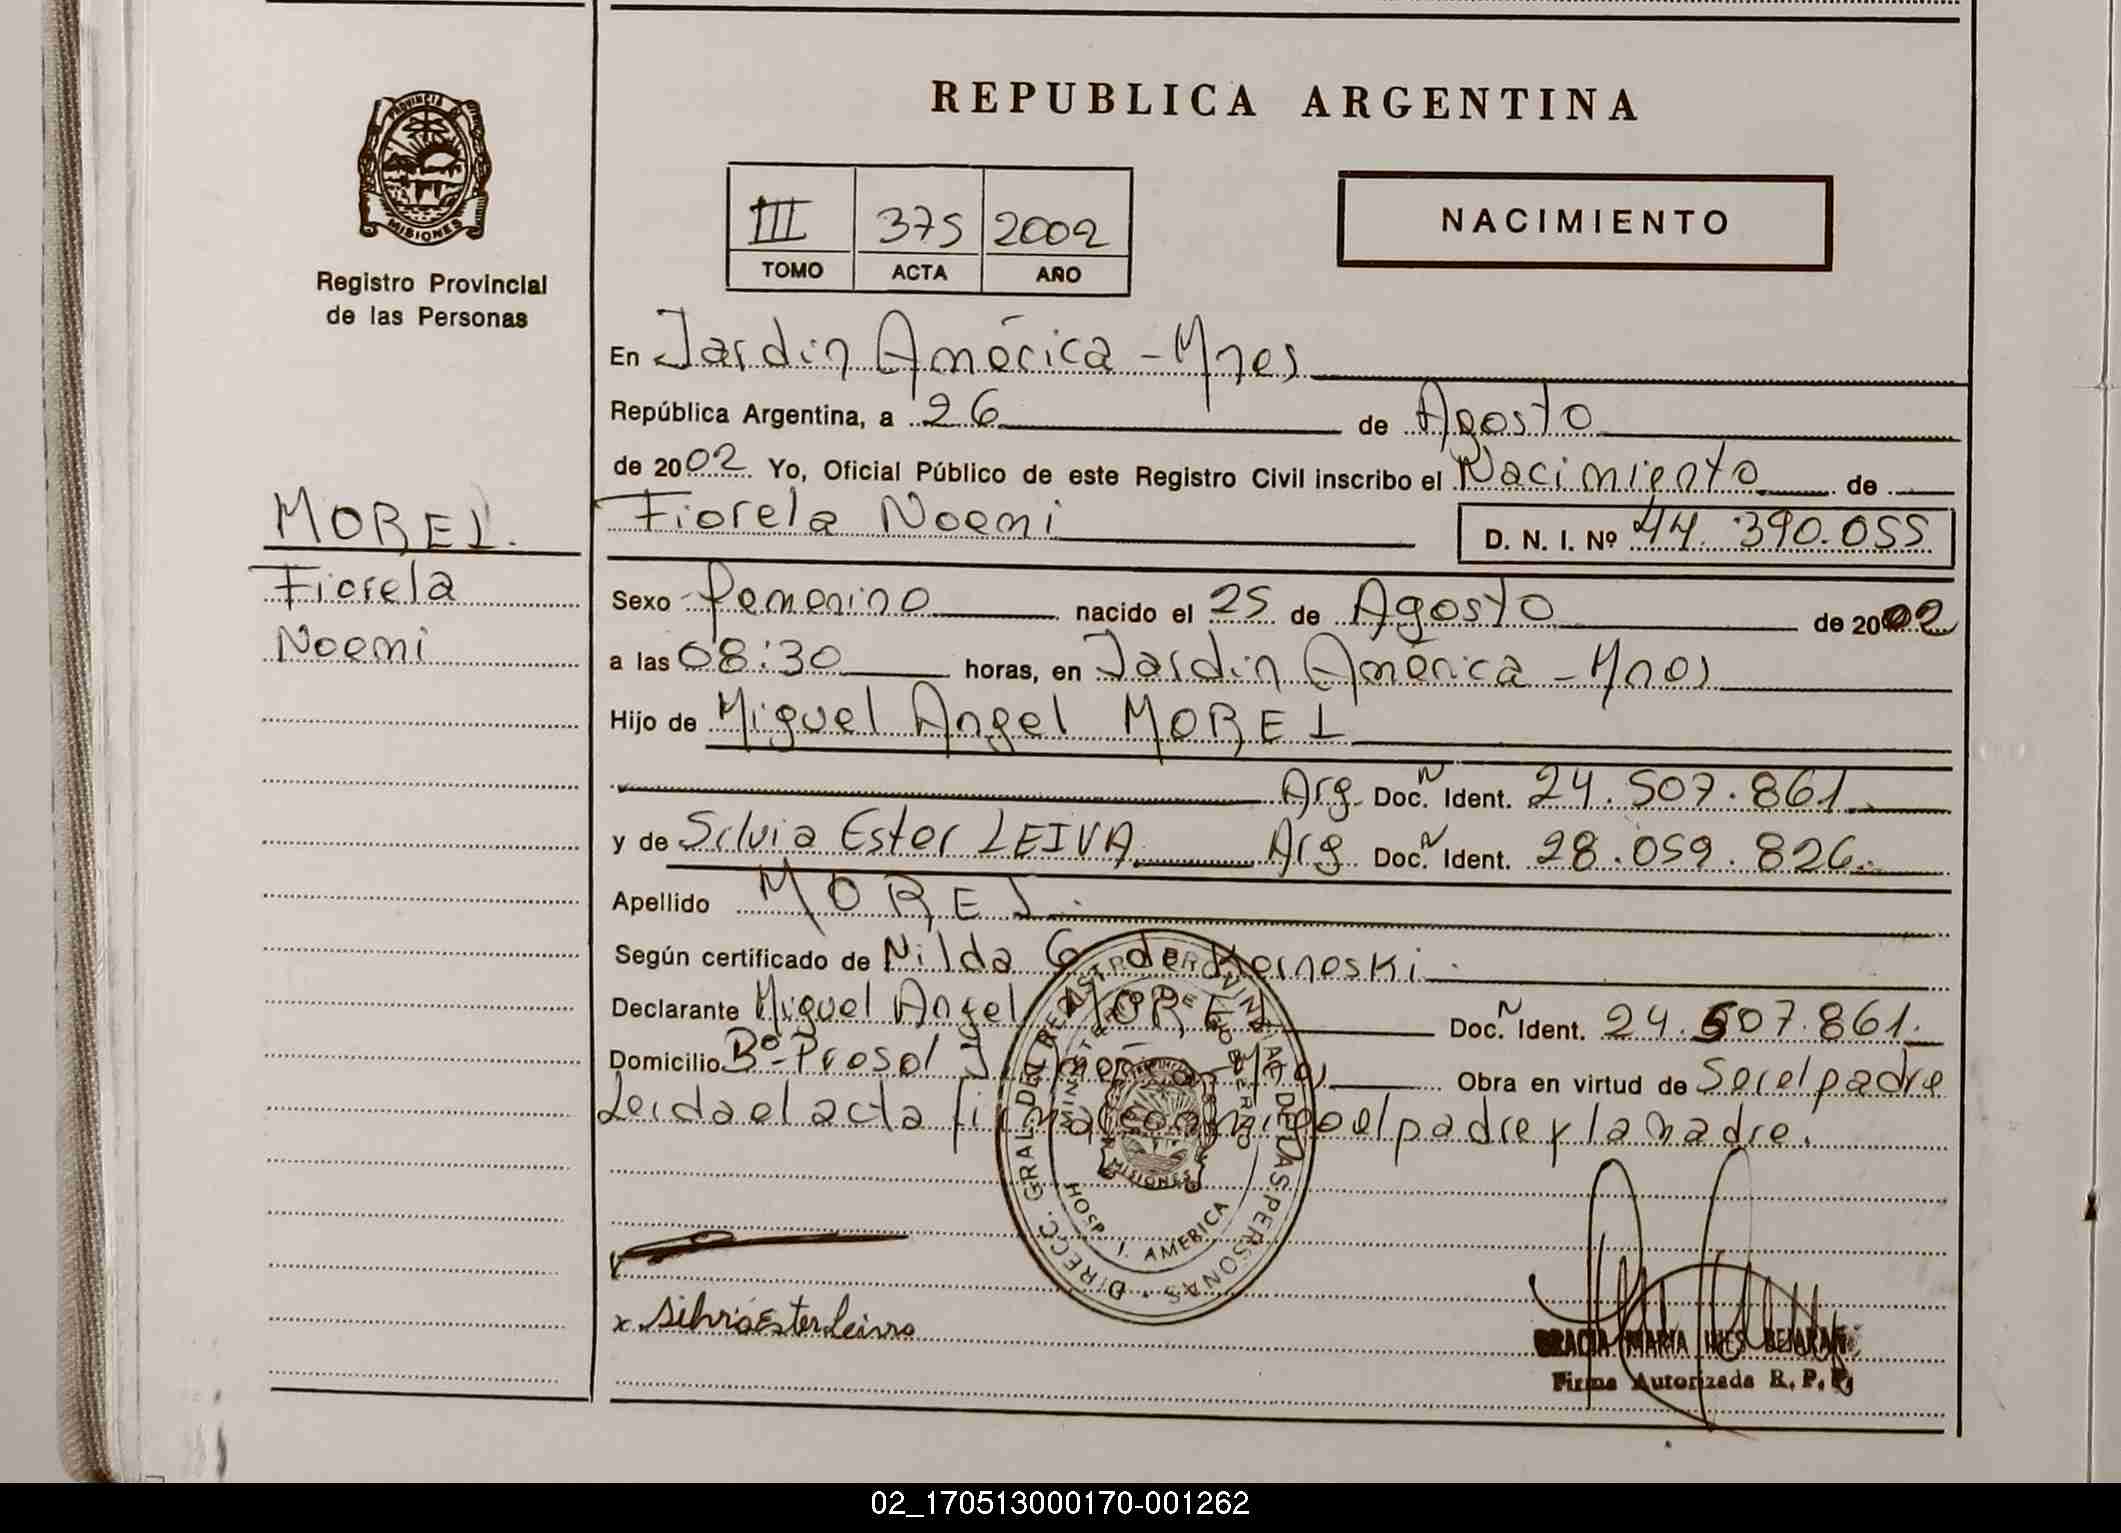 REPUBLICA ARGENTINA
PROVINCIA
MISIONES
Registro Provincial
de las Personas
III 375 2002
TOMO ACTA AÑO
NACIMIENTO
En Jardin América - Mnes
República Argentina, a 26 de Agosto
de 2002. Yo, Oficial Público de este Registro Civil inscribo el Nacimiento de
Fiorela Noemi D. N. I. Nº 44.390.055
MOREL.
Fiorela
Noemi
Sexo femenino nacido el 25 de Agosto de 2002
a las 08:30 horas, en Jardin América - Mnes
Hijo de Miguel Angel MOREL
Arg. Doc. N Ident. 24.507.861.
y de Silvia Ester LEIVA Arg Doc. N Ident. 28.059.826.
Apellido MOREL.
Según certificado de Nilda G de Kornoski.
Declarante Miguel Angel MOREL Doc. N Ident. 24.507.861.
Domicilio Bº Prosol J. América - Mnes Obra en virtud de Ser el padre
Leida el acta firma conmigo el padre y la madre.
DIRECC. GRAL. DEL REGISTRO PROVINCIAL DE LAS PERSONAS
MINISTERIO DE GOBIERNO
MISIONES
HOSP. J. AMERICA
x Silvia Ester Leiva
GRACIA MARIA INES BEJARANO
Firma Autorizada R. P. P.
02_170513000170-001262